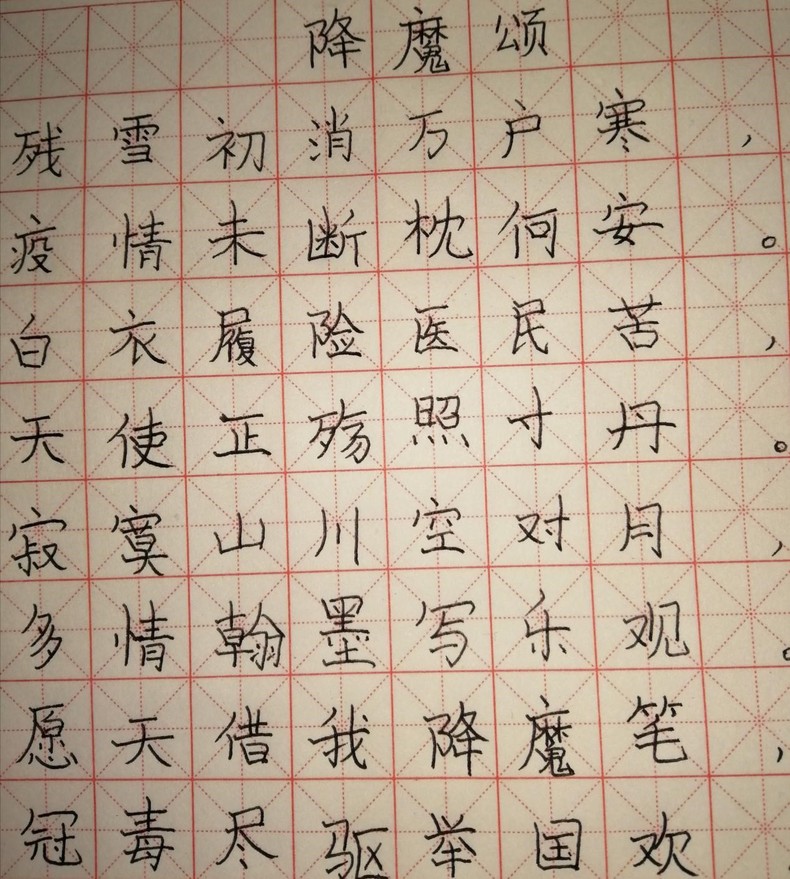 降魔颂
残雪初消万户寒，
疫情未断枕何安。
白衣履险医民苦，
天使正殇照寸丹。
寂寞山川空对月，
多情翰墨写乐观。
愿天借我降魔笔，
冠毒尽驱举国欢